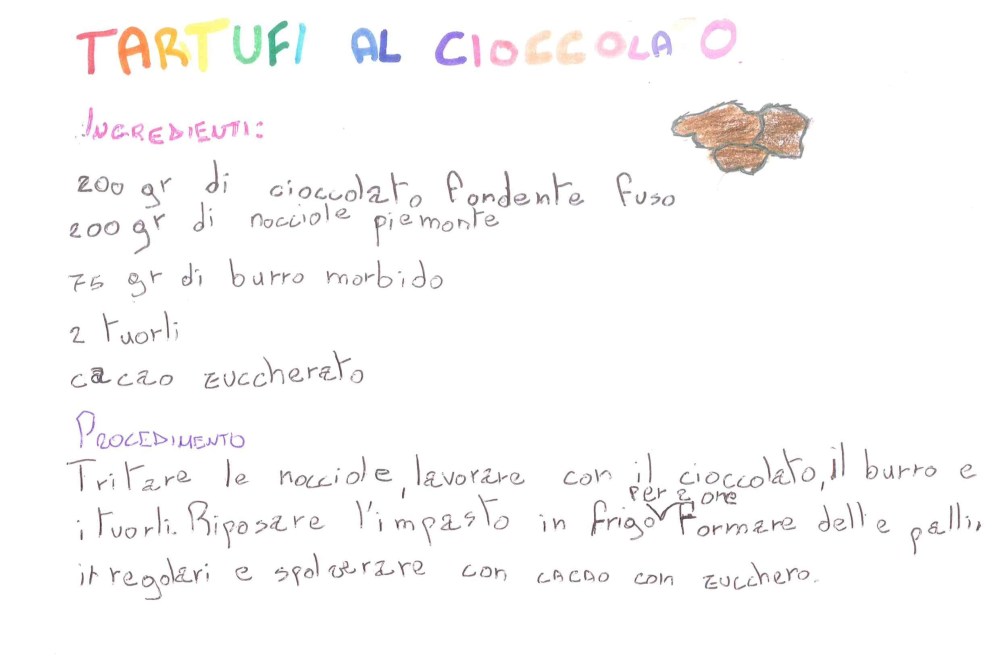 TARTUFI AL CIOCCOLATO
INGREDIENTI:
200 gr di cioccolato fondente fuso
200 gr di nocciole piemonte
75 gr di burro morbido
2 tuorli
cacao zuccherato
PROCEDIMENTO
Tritare le nocciole, lavorare con il cioccolato, il burro e
per 2 ore
i tuorli. Riposare l'impasto in frigo Formare delle palli,
irregolari e spolverare con CACAO con zucchero.